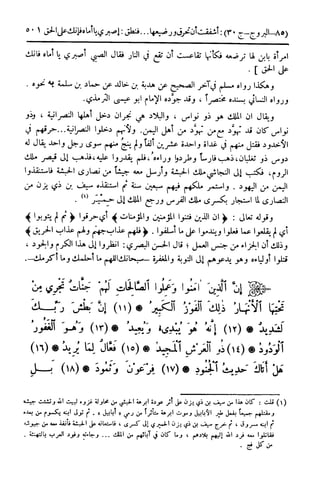 (٨٥-البروج-ج ٣٠) : أشفقت أن تحرق ورضيعها... فنطق : إصبري يا أماه فإنك على الحق ٥٠١
امرأة بابن لها ترضعه فكأنها تقاعست أن تقع في النار فقال الصبي أصبري يا أماه فانك
على الحق ] .
وهكذا رواه مسلم في آخر الصحيح عن هدبة بن خالد عن حماد بن سلمة به نحوه .
ورواه النسائي بسنده مختصراً ، وقد جوّده الإمام ابو عيسى الترمذي.
ويقال ان الملك هو ذو نواس ، والبلاد هي نجران دخل أهلها النصرانية ، وذو
نواس كان قد تهوّد مع من تهوّد من أهل اليمن . ولأنهم دخلوا النصرانية... حرقهم في
الأخدود فقتل منهم في غداة واحدة عشرين ألفاً ولم ينج منهم سوى رجل واحد يقال له
دوس ذو ثعلبان، ذهب فارساً وطردوا وراءه، فلم يقدروا عليه، فذهب إلى قيصر ملك
الروم، فكتب إلى النجاشي ملك الحبشة وأرسل معه جيشاً من نصارى الحبشة فاستنقذوا
اليمن من اليهود . واستمر ملكهم فيهم سبعين سنة ثم استنقذه سيف بن ذي يزن من
النصارى لما استجار بكسرى ملك الفرس ورجع الملك إلى حِمْيَر (١) .
وقوله تعالى : ﴿ ان الذين فتنوا المؤمنين والمؤمنات ﴾ أي حرقوا ﴿ ثم لم يتوبوا ﴾
أي لم يقلعوا عما فعلوا ويندموا على ما أسلفوا . ﴿ فلهم عذاب جهنم ولهم عذاب الحريق ﴾
وذلك أن الجزاء من جنس العمل ؛ قال الحسن البصري : انظروا إلى هذا الكرم والجود ،
قتلوا أولياءه وهو يدعوهم إلى التوبة والمغفرة – سبحانك اللهم ما أحلمك وما أكرمك .
إِنَّ ٱلَّذِينَ آمَنُوا وَعَمِلُوا ٱلصَّالِحَاتِ لَهُمْ جَنَّاتٌ تَجْرِي مِنْ
تَحْتِهَا ٱلْأَنْهَارُ ذَٰلِكَ ٱلْفَوْزُ ٱلْكَبِيرُ (١١) إِنَّ بَطْشَ رَبِّكَ
لَشَدِيدٌ (١٢) إِنَّهُ هُوَ يُبْدِىءُ وَيُعِيدُ (١٣) وَهُوَ ٱلْغَفُورُ
ٱلْوَدُودُ (١٤) ذُو ٱلْعَرْشِ ٱلْمَجِيدُ (١٥) فَعَّالٌ لِمَا يُرِيدُ (١٦)
هَلْ أَتَاكَ حَدِيثُ ٱلْجُنُودِ (١٧) فِرْعَوْنَ وَثَمُودَ (١٨) بَلِ
(١) قلت : كان هذا من سيف بن ذي يزن على أثر عودة ابرهة الحبشي من محاولة غزوه لبيت الله وتشتت جيشه
ومقتلهم جميعاً بفعل طير الأبابيل وموت ابرهة متأثراً من رمي « أبابيل » . ثم تولى ابنه يكسوم من بعده
ثم ابنه مسروق ، ثم خرج سيف بن ذي يزن الحميري إلى كسرى ، فاستعانه على الحبشة فأنفذ معه من جيوشه
فقاتلوا معه فرد الله إليهم بلادهم ، وما كان في آبائهم من الملك ... وجاءته وفود العرب بالتهنئة .
من كل فج .